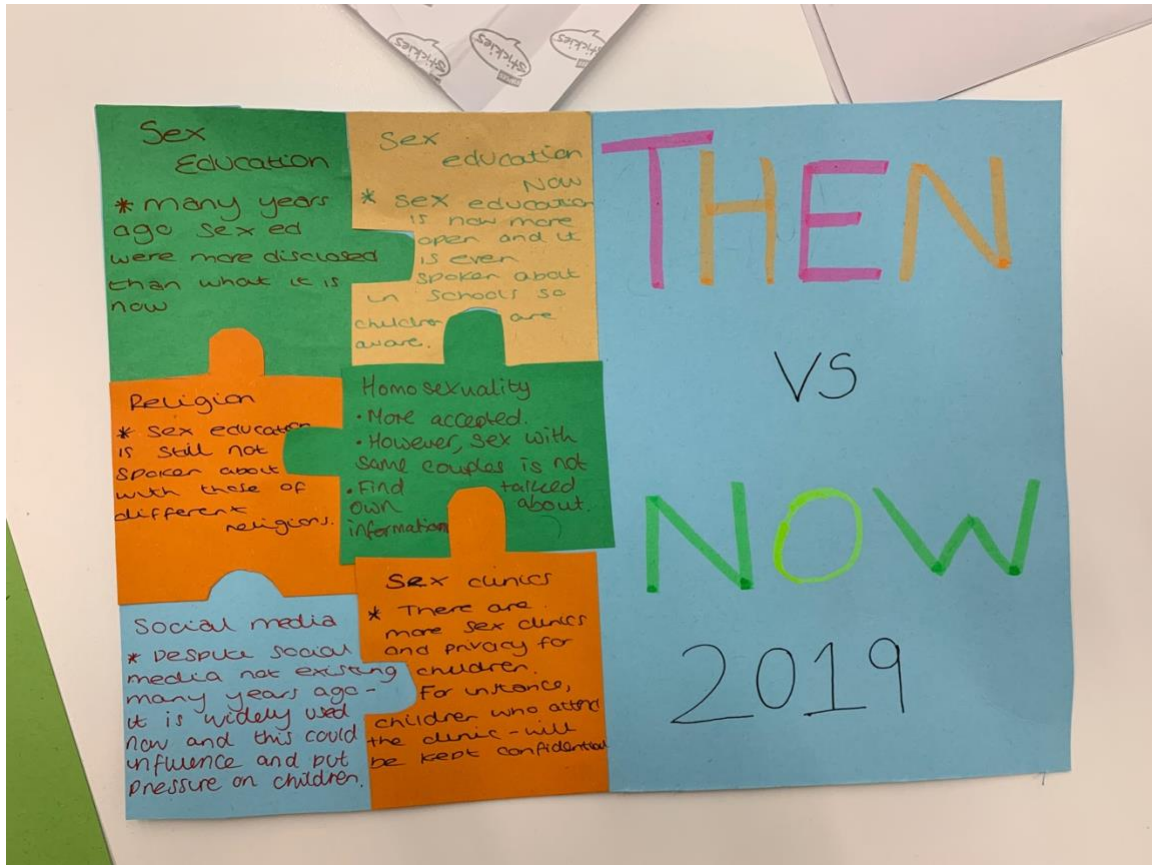 Stickies
Stickies
Stickies
Sex
Education
* many years
ago sex ed
were more disclosed
than what it is
now
Sex
education
NOW
* sex education
is now more
open and it
is even
spoken about
in schools so
children are
aware.
Religion
* Sex education
is still not
spoken about
with those of
different
religions.
Homosexuality
• More accepted.
• However, sex with
same couples is not
talked
about.
• Find
own
information
Social media
* Despite social
media not existing
many years ago -
it is widely used
now and this could
influence and put
pressure on children.
Sex clinics
* There are
more sex clinics
and privacy for
children.
For instance,
children who attend
the clinic - will
be kept confidential
THEN
VS
NOW
2019